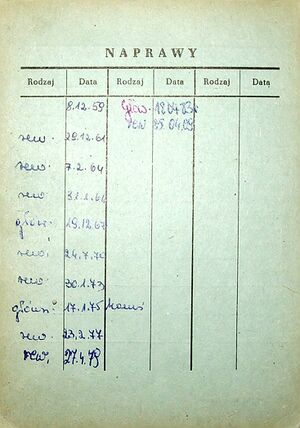 NAPRAWY
Rodzaj Data Rodzaj Data Rodzaj Data
8.12.59 głów. 18.04.83
rew. 29.12.61 rew
rew. 7.2.64
rew. 31.1.6
głów. 19.12.67
rew. 24.7.70
rew. 30.1.73
główn. 17.1.75
rew. 23.2.77
rew. 27.4.79